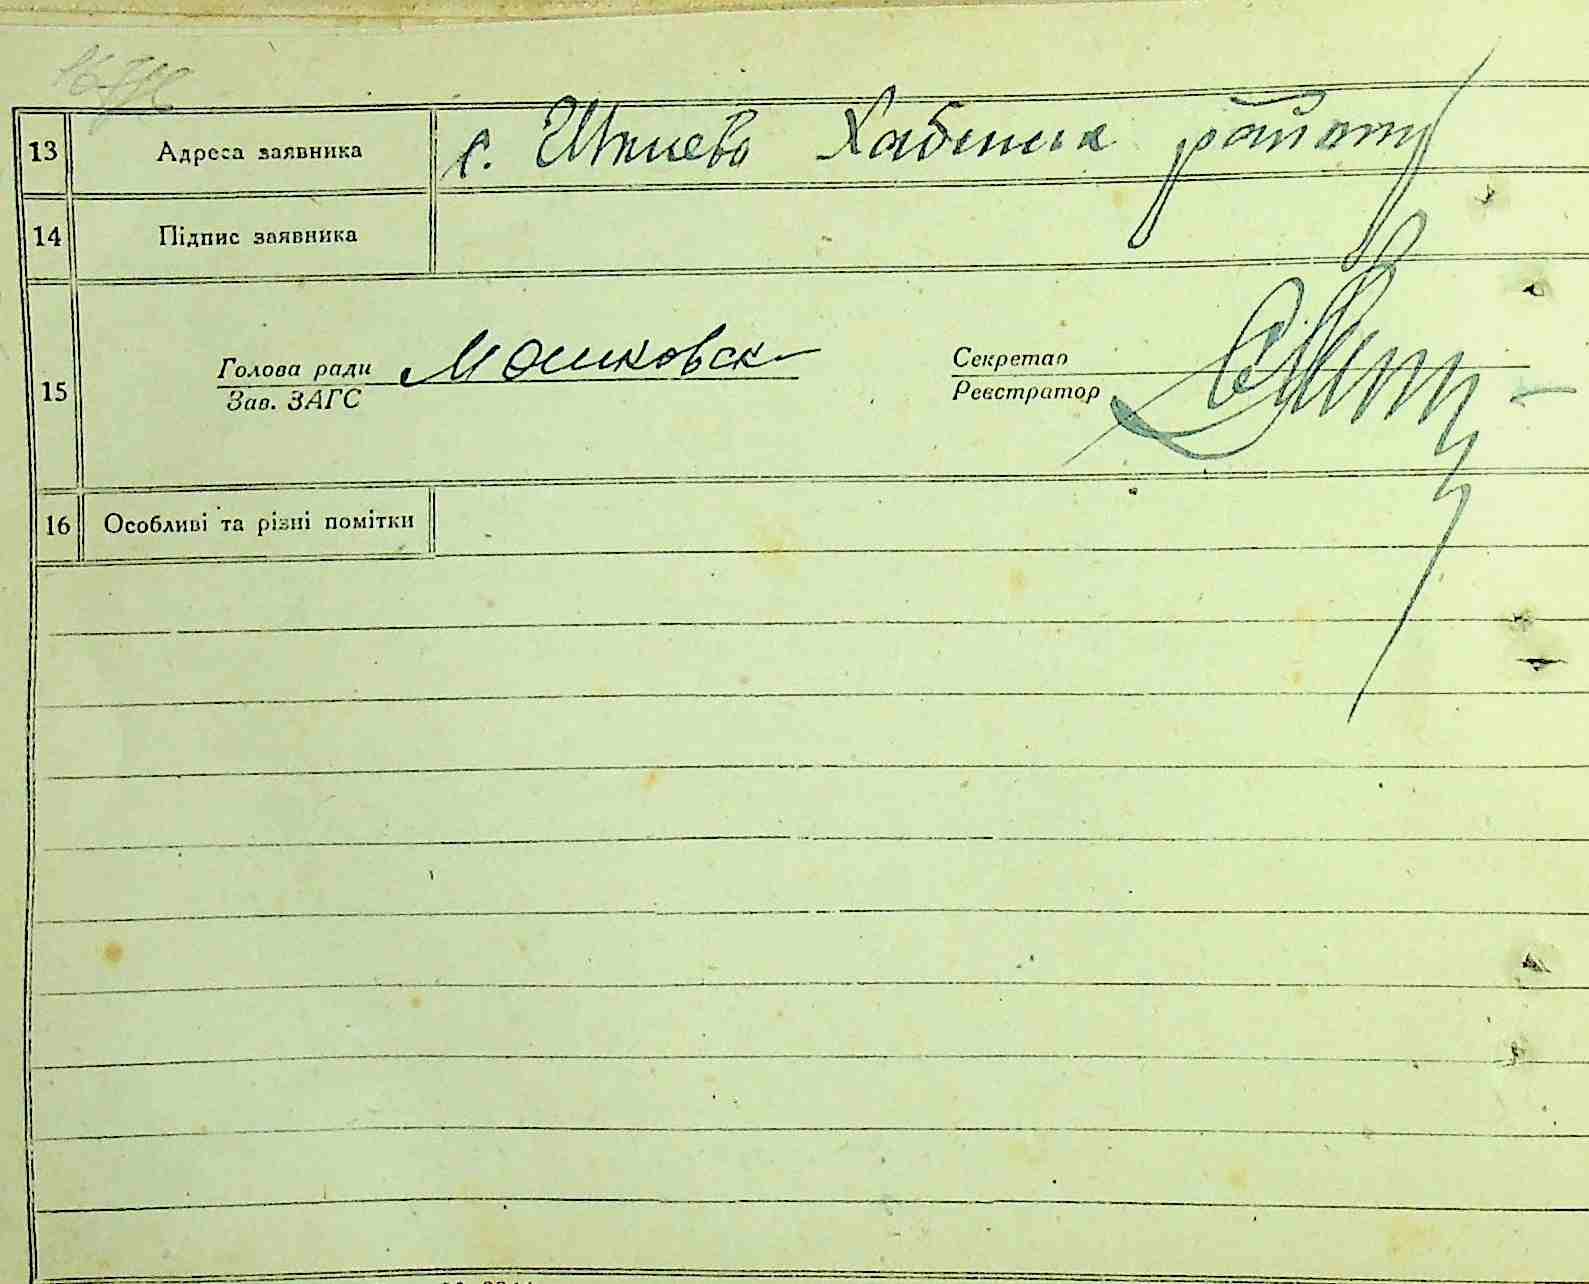 13 Адреса заявника с. Шпиево Хабенск району
14 Підпис заявника
15 Голова ради Мошковск Секретар
Зав. ЗАГС Реєстратор
16 Особливі та різні помітки